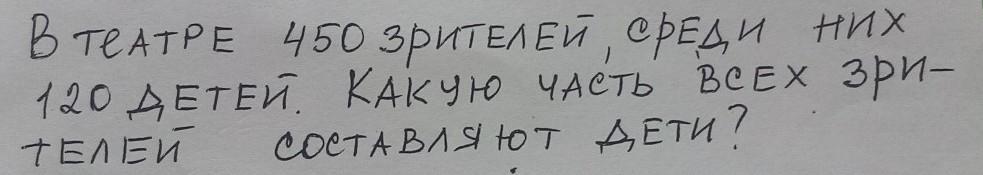 В ТЕАТРЕ 450 ЗРИТЕЛЕЙ, СРЕДИ НИХ
120 ДЕТЕЙ. КАКУЮ ЧАСТЬ ВСЕХ ЗРИ-
ТЕЛЕЙ СОСТАВЛЯЮТ ДЕТИ?